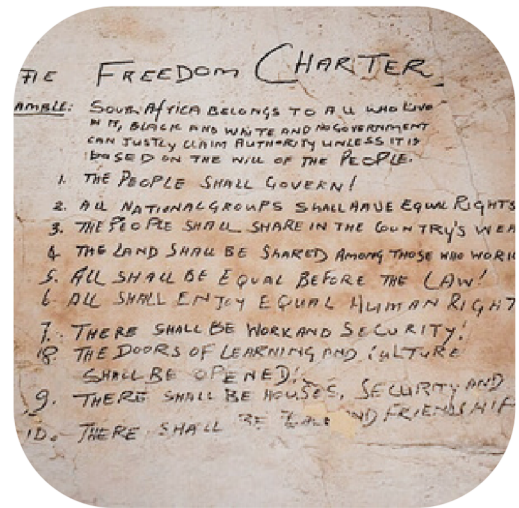 THE FREEDOM CHARTER
AMBLE: SOUTH AFRICA BELONGS TO ALL WHO LIVE
IN IT, BLACK AND WHITE AND NO GOVERNMENT
CAN JUSTLY CLAIM AUTHORITY UNLESS IT IS
BASED ON THE WILL OF THE PEOPLE.
1. THE PEOPLE SHALL GOVERN!
2. ALL NATIONAL GROUPS SHALL HAVE EQUAL RIGHTS
3. THE PEOPLE SHALL SHARE IN THE COUNTRY'S WEA
4. THE LAND SHALL BE SHARED AMONG THOSE WHO WORK
5. ALL SHALL BE EQUAL BEFORE THE LAW!
6. ALL SHALL ENJOY EQUAL HUMAN RIGHT
7. THERE SHALL BE WORK AND SECURITY!
8. THE DOORS OF LEARNING AND CULTURE
SHALL BE OPENED!
9. THERE SHALL BE HOUSES, SECURITY AND
10. THERE SHALL BE ND FRIENDSHIP